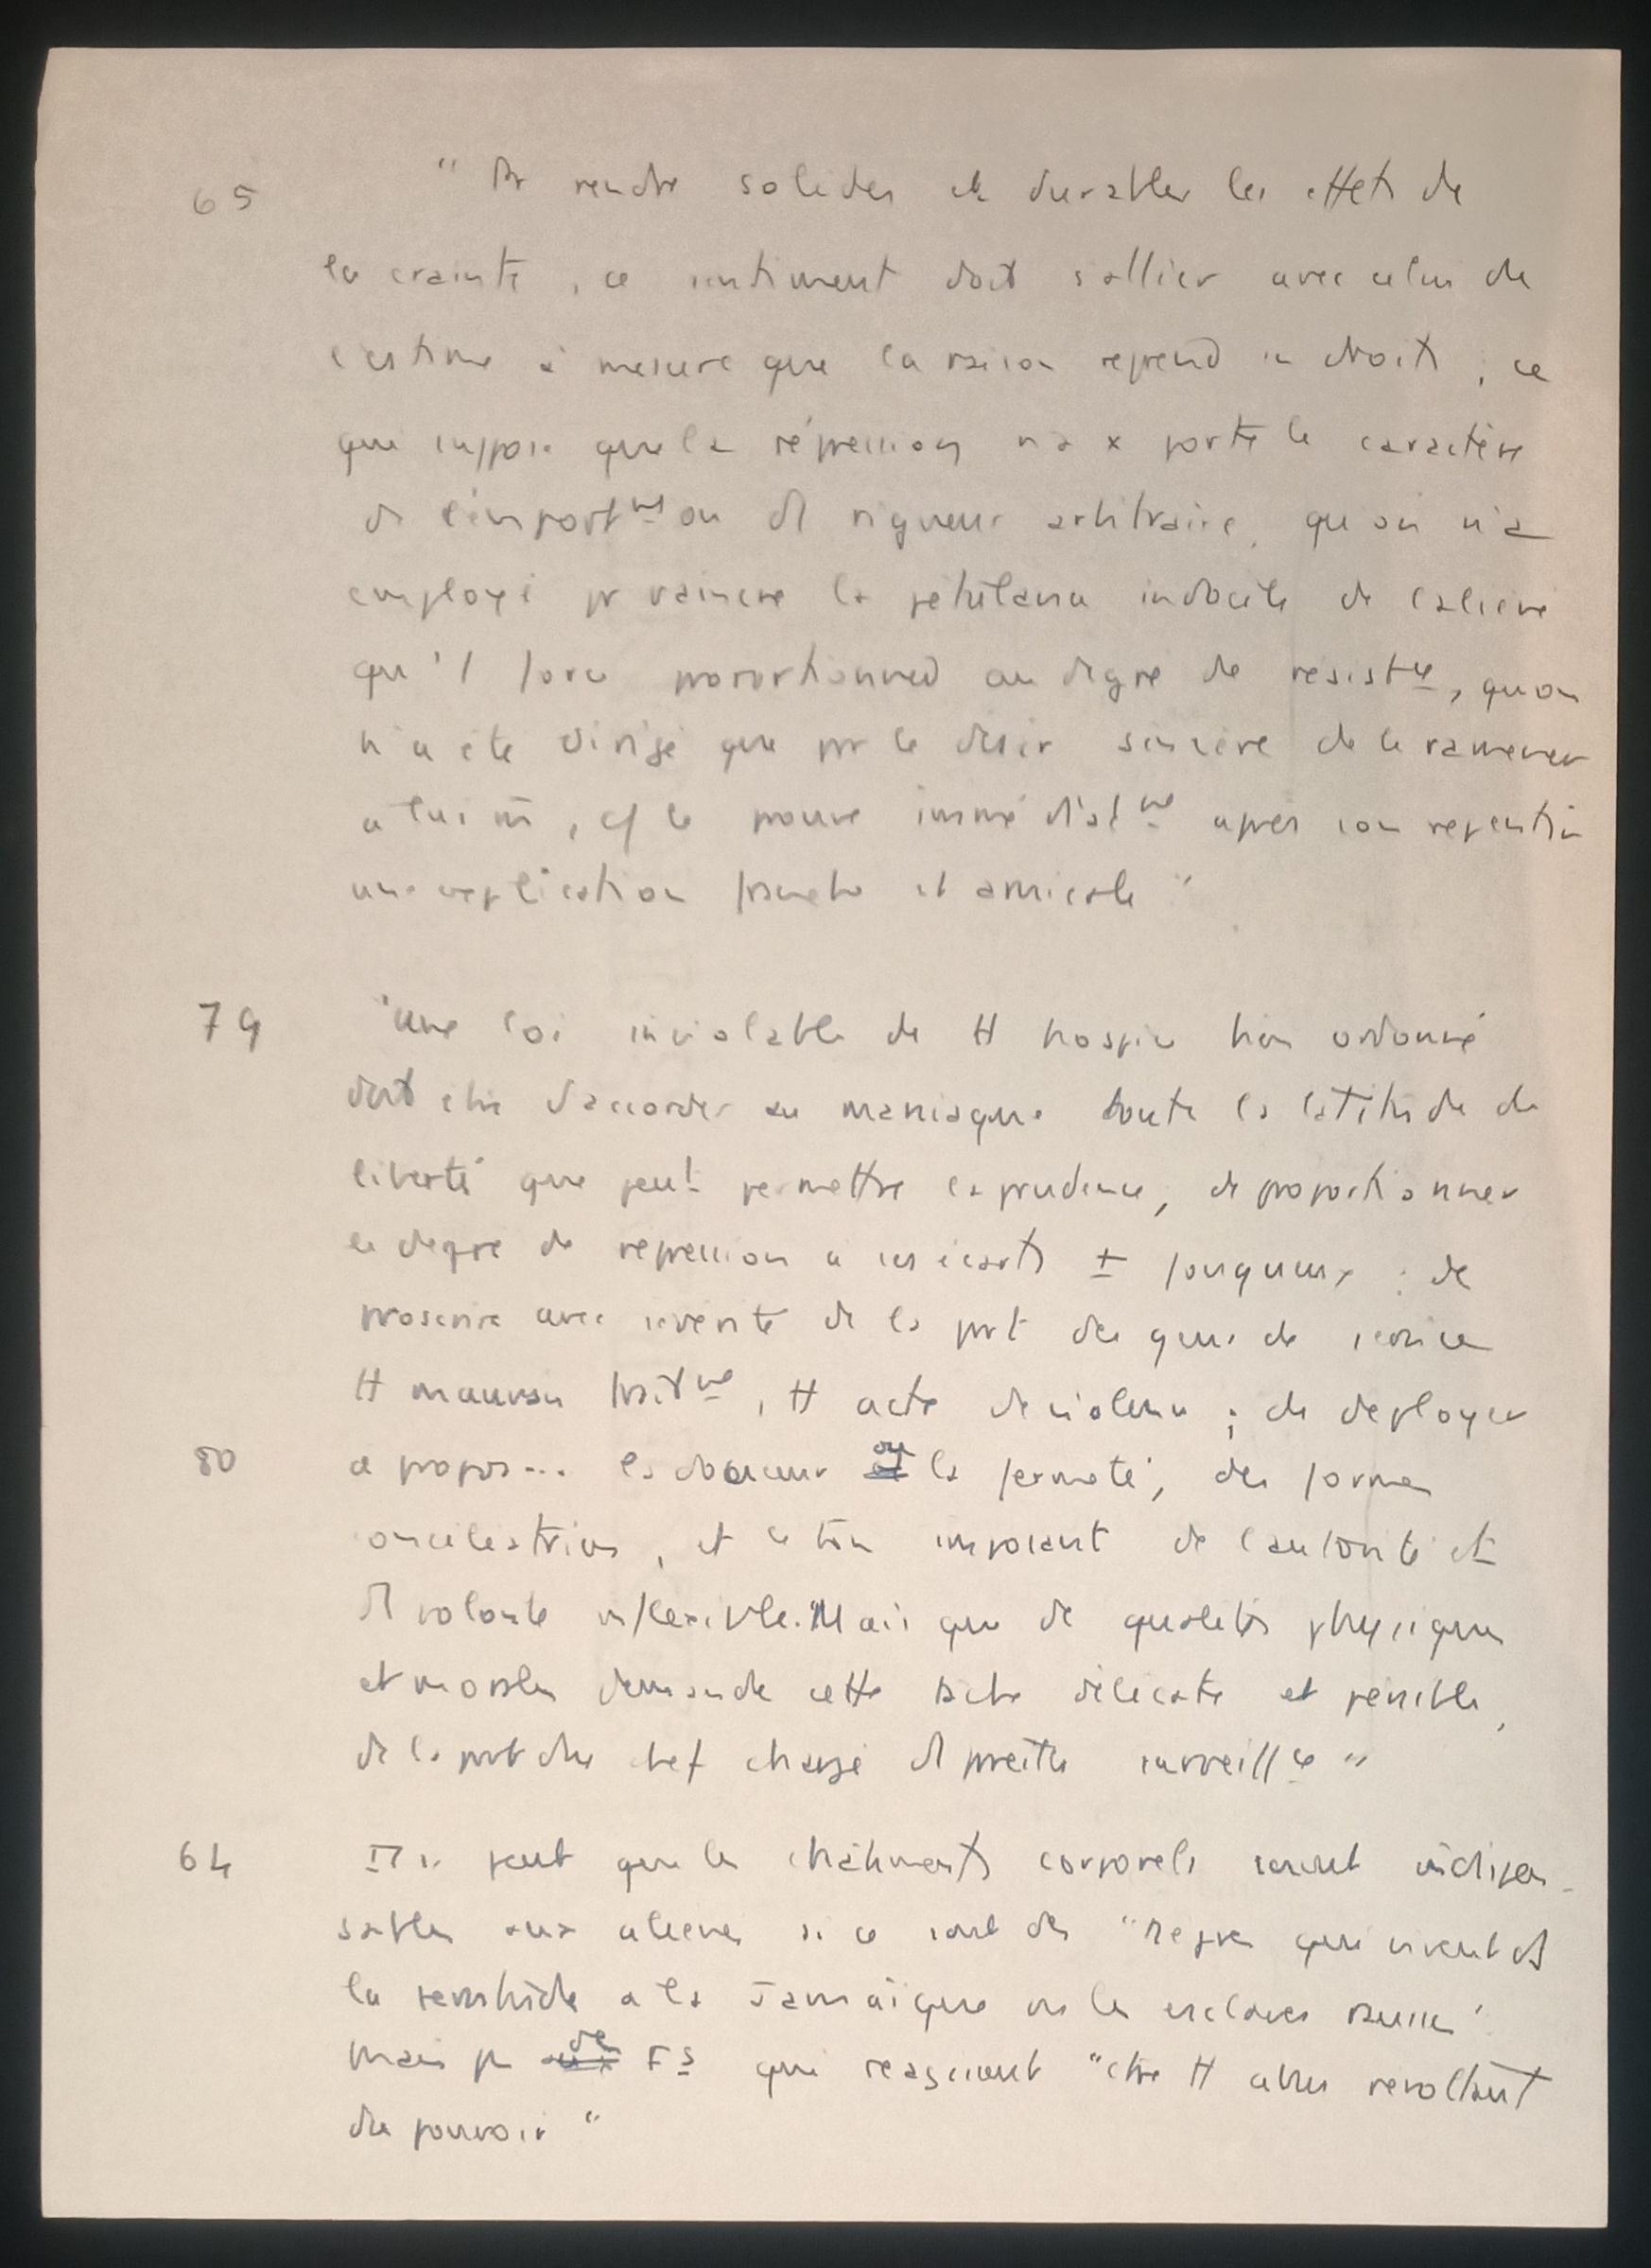 65 "Pr rendre solides et durables les effets de
la crainte, ce sentiment doit s'allier avec celui de
l'estime à mesure que la raison reprend ses droits, ce
qui suppose que la répression n'a x porté le caractère
de l'emport^mt ou d'1 rigueur arbitraire, qu'on n'a
employé pr vaincre la pétulance indocile de l'aliéné
qu'1 force proportionnée au degré de résist^ce, qu'on
n'a été dirigé que pr le désir sincère de le ramener
à lui m̄, cf le prouve immédiat^mt après son repentir
une explication franche et amicale"
79 "Une loi inviolable de tt hospice bien ordonné
doit être d'accorder au maniaque toute la latitude de
liberté que peut permettre la prudence, de proportionner
le degré de répression à ses écarts ± fougueux : de
proscrire avec sévérité de la part des gens de service
tt mauvais trait^mt, tt acte de violence ; de déployer
80 à propos... la douceur ou la fermeté, des formes
conciliatrices, et le ton imposant de l'autorité et
d'1 volonté inflexible. Mais que de qualités physiques
et morales demande cette tâche délicate et pénible,
de la part du chef chargé d'1 pareille surveill^ce"
64 Il se peut que les châtiments corporels soient indispen-
sables aux aliénés si ce sont des "nègres qui vivent ds
la servitude à la Jamaïque ou les esclaves russes"
mais pr des Fs qui réagissent "ctre tt abus révoltant
du pouvoir"